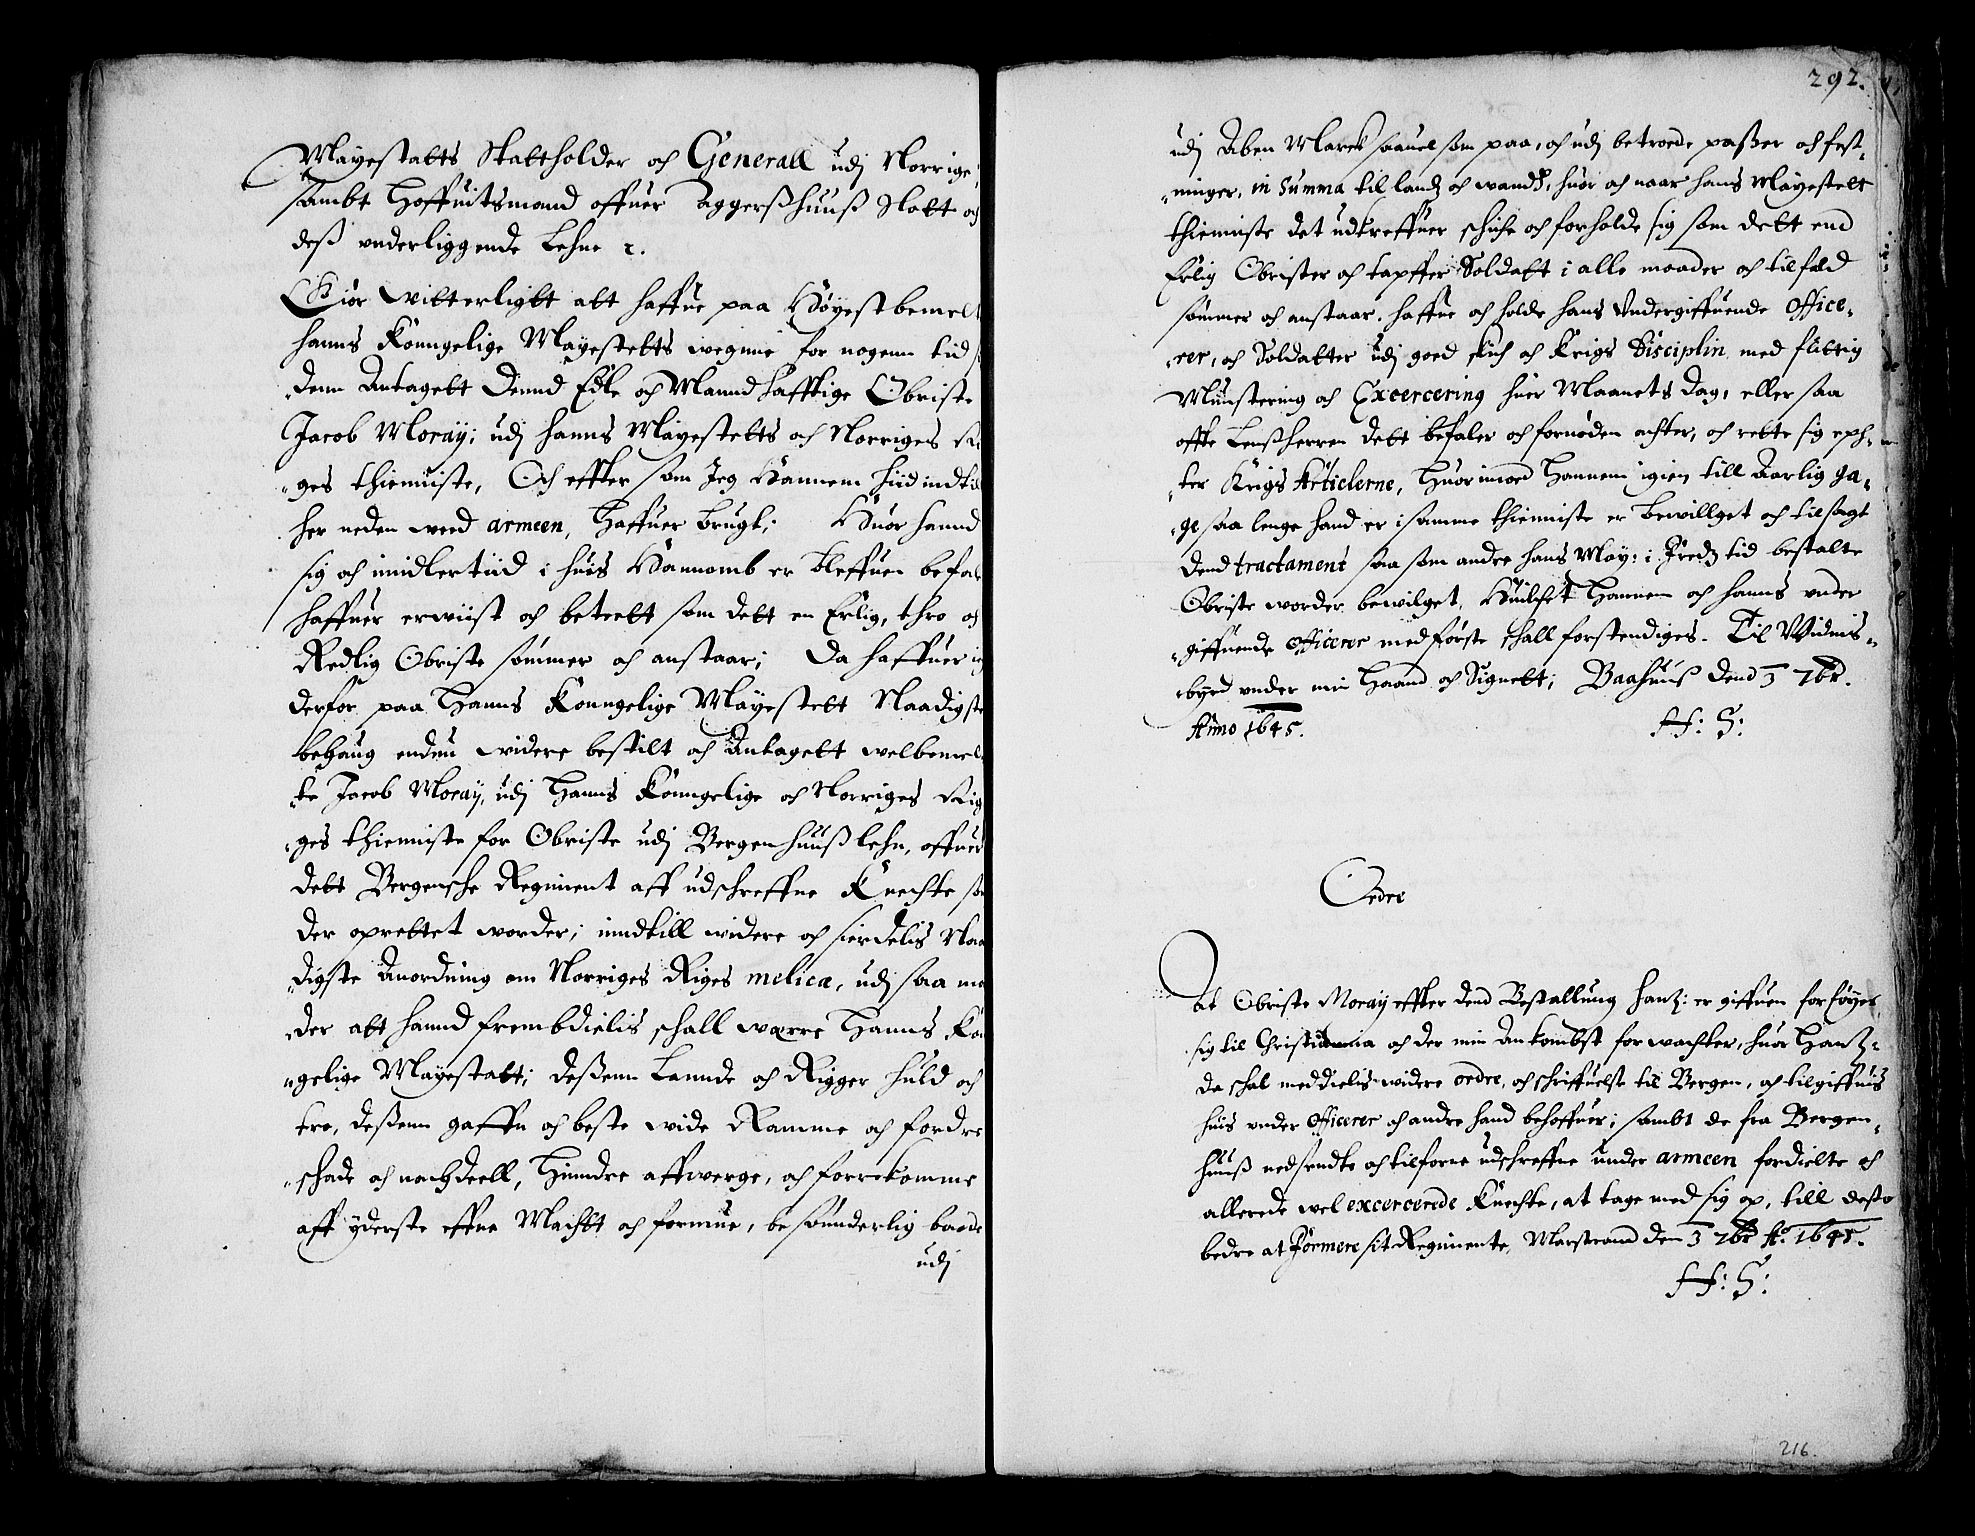 Mayestatts Stattholder och Generall udj Norrige,
sambt Hoffuitsmand offuer Aggerßhuuß Slott och
deß vnderliggende Lehne r.
Giör witterligtt att haffue paa Höyest bemelt
hanns Konngelige Mayestetts wegnne for nogenn tid
denn Antagett Dennd Edle och Manndhafftige Obriste
Jacob Moraÿ; udj hanns Mayestetts och Norriges Ri
ges thienniste, Och effter som Jeg Hannem hiid indtil
her neden weed armeen, Haffuer brugt; Huor hannd
sig och imidlertiid i huis Hannomb er bleffuen befal
haffuer erwiist och beteett som dett en Erlig, thro och
Redlig Obriste sömmer och anstaar; Da haffuer ieg
derfor paa Hanns Konngelige Mayestett Naadigste
behaug endnu widere bestilt och Antagett welbemel
te Jacob Moraÿ, udj Hanns Konngelige och Norriges Rig
ges thienniste for Obriste udj Bergenhuuß lehn, offuer
dett Bergensche Regiment aff udschreffne Knechte som
der oprettet worder; inndtill widere och sierdelis Naa
digste Anordning om Norriges Riges melica, udj saa ma
der att hannd frembdielis schall wærre Hanns Kon
gelige Mayestatt; deßenn Lannde och Rigger huld och
tro, deßenn gaffn och beste wide Ramme och fordre
schade och nachdeell, Hinndre affwerge, och forrekomme
aff yderste effne Machtt och formue, besönnderlig baade
udj
292.
udj Aben Marck saauelsom paa, och udj betroede paßer och fest¬
ninger, in Summa till landz och wandz, huor och naar hans Mayestett
thienniste det udkreffuer schiche och forholde sig som dett end
Erlig Obrister och tapffer Soldatt i alle maader och tilfald
sömmer och anstaar. haffue och holde hans Undergiffuende Office¬
rer, och Soldatter udj goed skich och Krigs Disciplin med flittig
Munstering och Excercering huer Maanets dag, eller saa
offte Lenßherren dett befaler och fornöden achter, och rette sig eph¬
ter Krigs Articlerne, Huorimod Hannem igien till Aarlig ga¬
ge saa lenge hand er i samme thienniste er bewillget och tilsagt
dend tractament saa som andre hans May: i Fredz tid bestalte
Obriste worder bewilget, Huilchet Hannem och hanns under
giffuende officerer med förste schall forstendiges. Til Widnis¬
byrd under min Haand och Signett; Baahuuß dend 3 7br.
Anno 1645.
H: S:
Ordre
At Obriste Moraÿ effter dend Bestallung hanz: er giffuen forföyer
sig til Christiania och der min Ankombst forwachter, huor Hanz:
da schal meddielis widere ordre, och schriffuelse til Bergen, och tilgiffuis
huis under officerer och andre hand behoffuer; sambt de fra Bergen¬
huuß nedsendte och tilforne udschreffne under armeen fordielte och
allerede wel excercerede Knechte, at tage med sig op, till desto
bedre at Formere sit Regimente, Marstrand den 3 7br Ao. 1645.
H: S:
216.